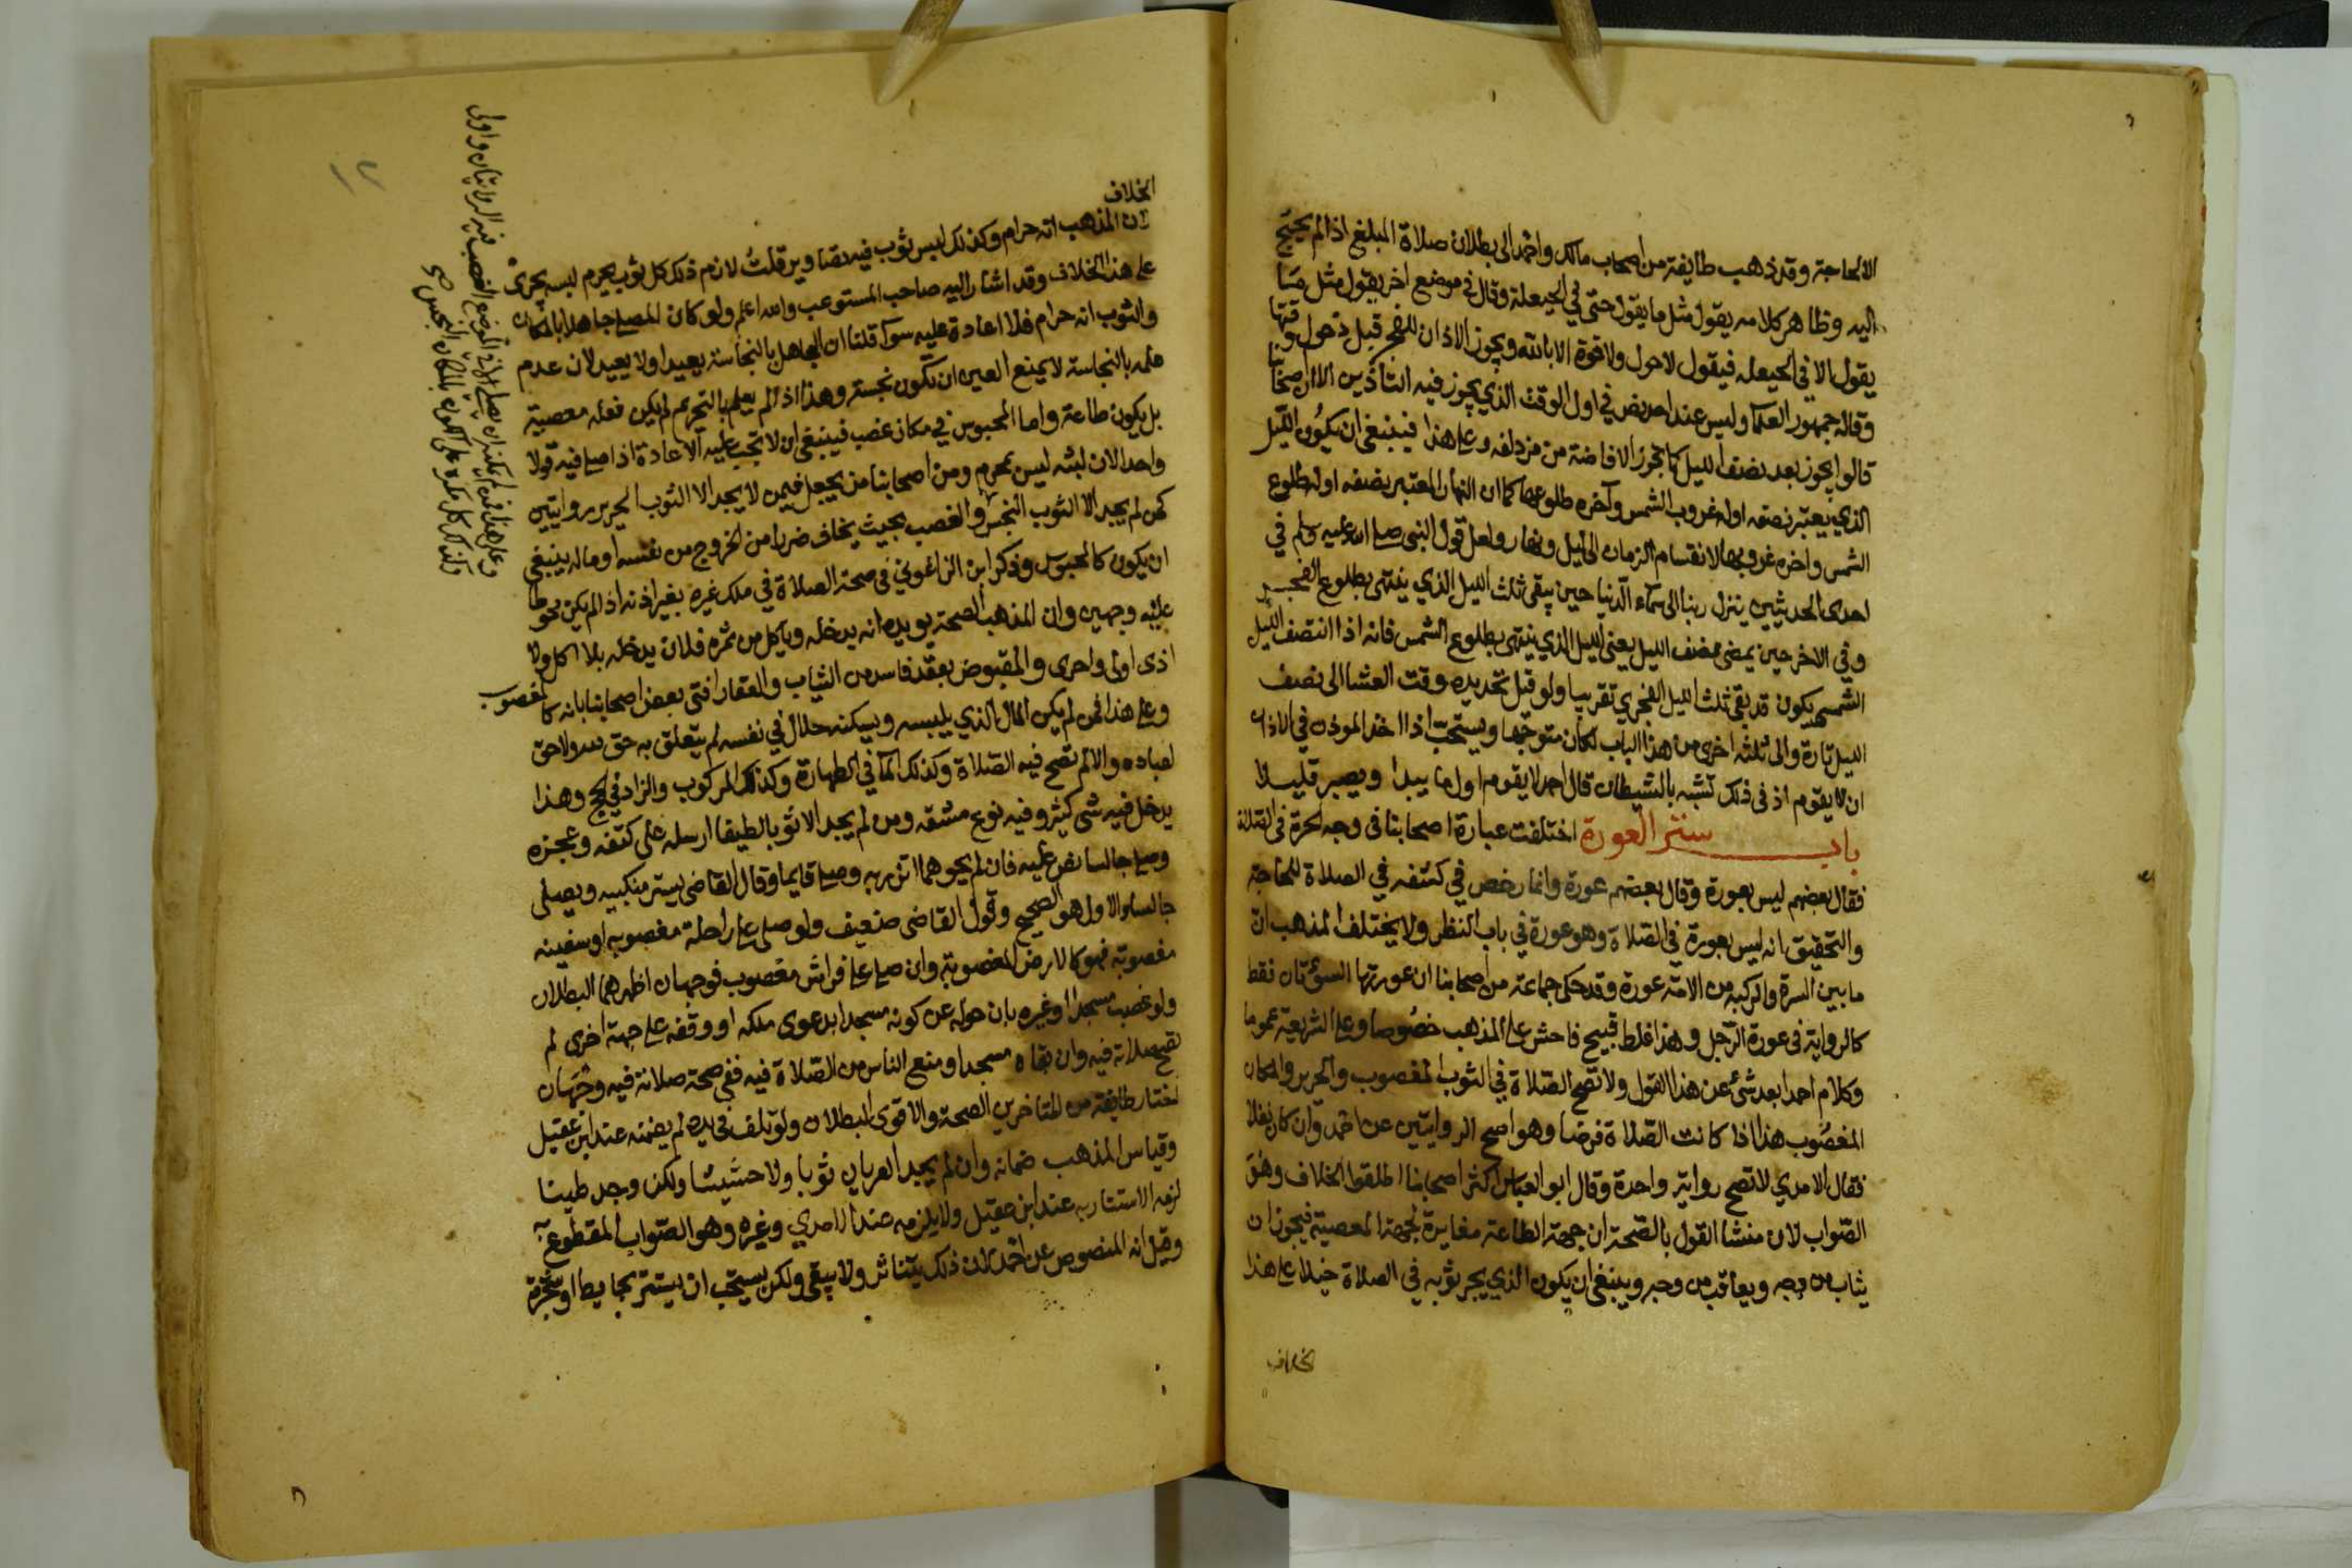 الا لحاجة وقد ذهب طايفة من اصحاب مالك واحمد الى بطلان صلاة المبلغ اذا لم يحتج
اليه وظاهر كلامه يقول مثل ما يقول حتى في الحيعلة وقال في موضع اخر يقول مثل ما
يقول الا في الحيعله فيقول لا حول ولا قوة الا بالله ويجوز الاذان للفجر قبل دخول وقتها
وقاله جمهور العلما وليس عند احد نص في اول الوقت الذي يجوز فيه التاذين الا ان اصحابنا
قالوا يجوز بعد نصف الليل كما يجوز الافاضة من مزدلفه وعلى هذا فينبغي ان يكون الليل
الذي يعتبر نصفه اوله غروب الشمس وآخره طلوعها كما ان النهار المعتبر نصفه اوله طلوع
الشمس واخره غروبها لانقسام الزمان الى ليل ونهار ولعل قول النبي صلى الله عليه وسلم في
احدى الحديثين ينزل ربنا الى سماء الدنيا حين يبقى ثلث الليل الذي ينتهي بطلوع الفجر
وفي الاخر حين يمضي نصف الليل يعني الليل الذي ينتهى بطلوع الشمس فانه اذا انتصف الليل
الشمسي يكون قد بقي ثلث الليل الفجري تقريبا ولو قيل تحديده وقت العشا الى نصف
الليل تارة والى ثلثه اخرى من هذا الباب لكان متوجها ويستحب اذا اخذ الموذن في الاذان
ان لا يقوم اذ في ذلك تشبه بالشيطان قال احمد لا يقوم اول ما يبدا ويصبر قليلا
باب ستر العورة اختلفت عبارة اصحابنا في وجه الحرة في الصلاة
فقال بعضهم ليس بعورة وقال بعضهم عورة وانما رخص في كشفه في الصلاة للحاجة
والتحقيق انه ليس بعورة في الصلاة وهو عورة في باب النظر ولا يختلف المذهب ان
ما بين السرة والركبه من الامة عورة وقد حكى جماعة من اصحابنا ان عورتها السوءتان فقط
كالرواية في عورة الرجل وهذا غلط قبيح فاحش على المذهب خصوصا وعلى الشريعة عموما
وكلام احمد ابعد شئ عن هذا القول ولا تصح الصلاة في الثوب المغصوب والحرير والمكان
المغصوب هذا اذا كانت الصلاة فرضا وهو اصح الروايتين عن احمد وان كان نفلا
فقال الامدي لا تصح رواية واحدة وقال ابو العباس اكثر اصحابنا اطلقوا الخلاف وهو
الصواب لان منشا القول بالصحة ان جهة الطاعة مغايرة لجهة المعصية فيجوز ان
يثاب من وجه ويعاقب من وجه وينبغي ان يكون الذي يجر ثوبه في الصلاة خيلا على هذا
الخلاف
الخلاف
لان المذهب انه حرام وكذلك لبس ثوب فيه تصاوير قلت لازم ذلك كل ثوب يحرم لبسه يجرى
على هذا الخلاف وقد اشار اليه صاحب المستوعب والله اعلم ولو كان المصلي جاهلا بالمكان
والثوب انه حرام فلا اعادة عليه سوآ قلنا ان الجاهل بالنجاسة يعيد اولا يعيد لان عدم
علمه بالنجاسة لا يمنع العين ان تكون نجسة وهذا اذا لم يعلم بالتحريم لم يكن فعله معصية
بل يكون طاعة واما المحبوس في مكان غصب فينبغي ان لا تجب عليه الاعادة اذا صلى فيه قولا
واحدا لان لبثه ليس بمحرم ومن اصحابنا من يجعل فيمن لا يجد الا الثوب الحرير روايتين
كمن لم يجد الا الثوب النجس والغصب بحيث يخاف ضررا من الخروج من نفسه او ماله ينبغي
ان يكون كالمحبوس وذكر ابن الزاغوني في صحة الصلاة في ملك غيره بغير اذنه اذا لم يكن محوطا
عليه وجهين وان المذهب الصحة يويده انه يدخله وياكل من ثمره فلان يدخله بلا اكل ولا
اذى اولى واحرى والمقبوض بعقد فاسد من الثياب والعقار افتى بعض اصحابنا بانه كالمغصوب
وعلى هذا فمن لم يكن المال الذي يلبسه ويسكنه حلالا في نفسه لم يتعلق به حق لله ولا حق
لعباده والا لم تصح فيه الصلاة وكذلك المآ في الطهارة وكذلك المركوب والزاد في الحج وهذا
يدخل فيه شئ كثير وفيه نوع مشقه ومن لم يجد الا ثوبا لطيفا ارسله على كتفه وعجزه
وصلى جالسا نص عليه فان لم يحوهما اتزر به وصلى قايما وقال القاضي يستر منكبيه ويصلى
جالسا والاول هو الصحيح وقول القاضي ضعيف ولو صلى على راحلة مغصوبه او سفينه
مغصوبة فهو كالارض المغصوبة وان صلى على فراش مغصوب فوجهان اظهرهما البطلان
ولو غصب مسجدا وغيره بان حوله عن كونه مسجدا بدعوى ملكه او وقفه على جهة اخرى لم
تصح صلاته فيه وان بقاه مسجدا ومنع الناس من الصلاة فيه ففي صحة صلاته فيه وجهان
اختار طايفة من المتاخرين الصحة والاقوى البطلان ولو تلف في يده لم يضمنه عند ابن عقيل
وقياس المذهب ضمانه وان لم يجد العريان ثوبا ولا حشيشا ولكن وجد طينا
لزمه الاستتار به عند ابن عقيل ولا يلزمه عند الامدي وغيره وهو الصواب المقطوع به
وقيل انه المنصوص عن احمد لان ذلك يتناثر ولا يبقى ولكن يستحب ان يستتر بحايط او شجرة